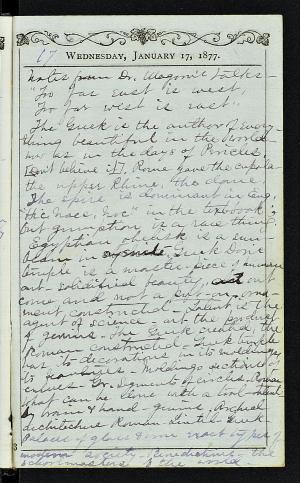 17
WEDNESDAY, JANUARY 17, 1877.
Notes from Dr. Talks—
"Too far east is west,
Too far west is east".
The Greek is the author of every-
thing beautiful in the world
now as in the days of Pericles.
[Don't believe it]. Rome gave the cupola
the upper Rhine, the
The spire is dominant in Eng.
in the textbook
is a race thing
Egyptian obelisk is a sun-
in Greek Doric
temple is a master-piece of
art— solidified beauty, out
come and not a put-on, orna-
ment constructed— Talent is the
agent of science— art the product
of genius. The Greek created, the
Roman constructed— Greek temple
has no decorations in its mouldings
Mouldings sections of
Gr. Segments of circles, Roman
what can be done with a tool
by brain & hand— genius. Arched
architecture Roman— lintel— Greek
Palaces of glass & iron exact types of
modern society— Benedictines— the
schoolmasters of the world.